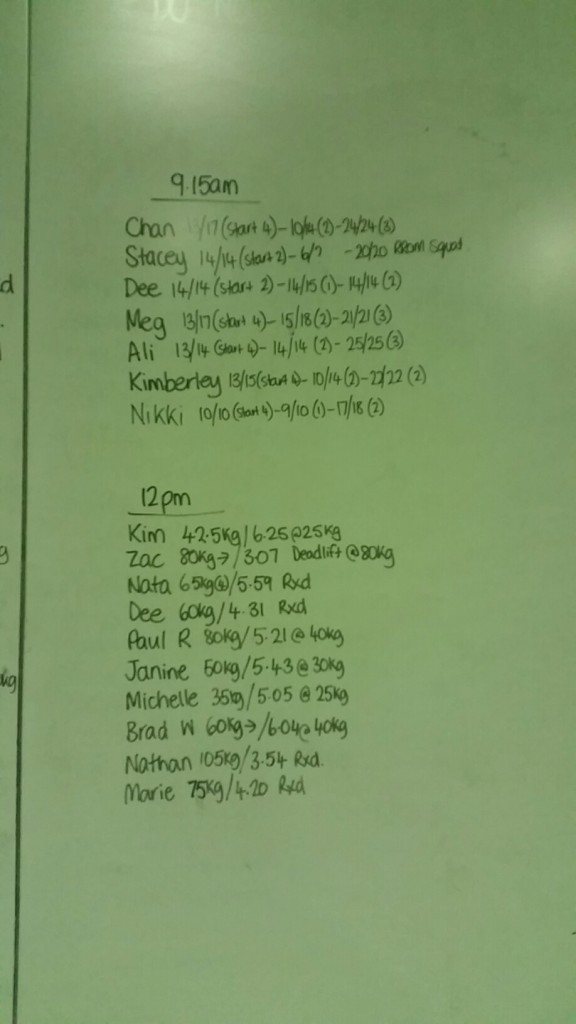 9.15am
Chan /17 (start 4) - 10/14 (2) - 24/24 (3)
Stacey 14/14 (start 2) - 6/? - 20/20 squad
Dee 14/14 (start 2) - 14/15 (1) - 14/14 (2)
Meg 13/17 (start 4) - 15/18 (2) - 21/21 (3)
Ali 13/14 (start 4) - 14/14 (2) - 25/25 (3)
Kimberley 13/15 (start 4) - 10/14 (2) - 22/22 (2)
Nikki 10/10 (start 4) - 9/10 (1) - 17/18 (2)
12pm
Kim 42.5kg/6.25@25kg
Zac 80kg→/3.07 Deadlift @80kg
Nata 65kg(4)/5.59 Rxd
Dee 60kg/4.31 Rxd
Paul R 80kg/5.21@40kg
Janine 50kg/5.43@30kg
Michelle 35kg/5.05 @ 25kg
Brad W 60kg→/6.04@40kg
Nathan 105kg/3.54 Rxd.
Marie 75kg/4.20 Rxd
d
g
kg